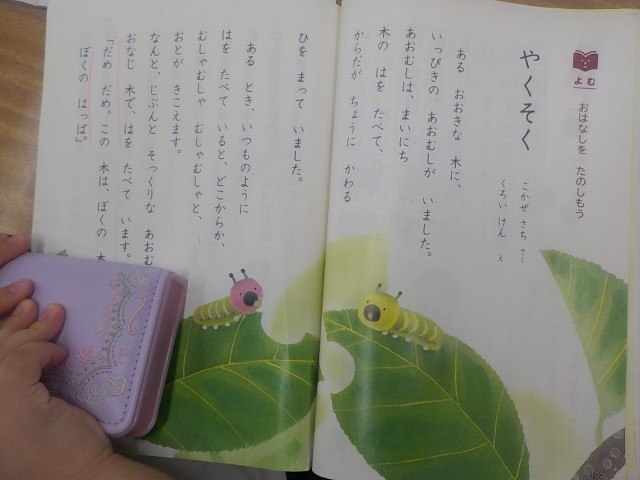 よむ
おはなしを たのしもう
やくそく
こかぜ さち さく
くろい けん え
ある おおきな 木に、
いっぴきの あおむしが いました。
あおむしは、まいにち
木の はを たべて、
からだが ちょうに かわる
ひを まって いました。
ある とき、いつものように
はを たべて いると、どこからか、
むしゃむしゃ むしゃむしゃと、
おとが きこえます。
なんと、じぶんと そっくりな あおむ
おなじ 木で、はを たべて います。
「だめ だめ。この 木は、ぼくの 木
ぼくの はっぱ。」